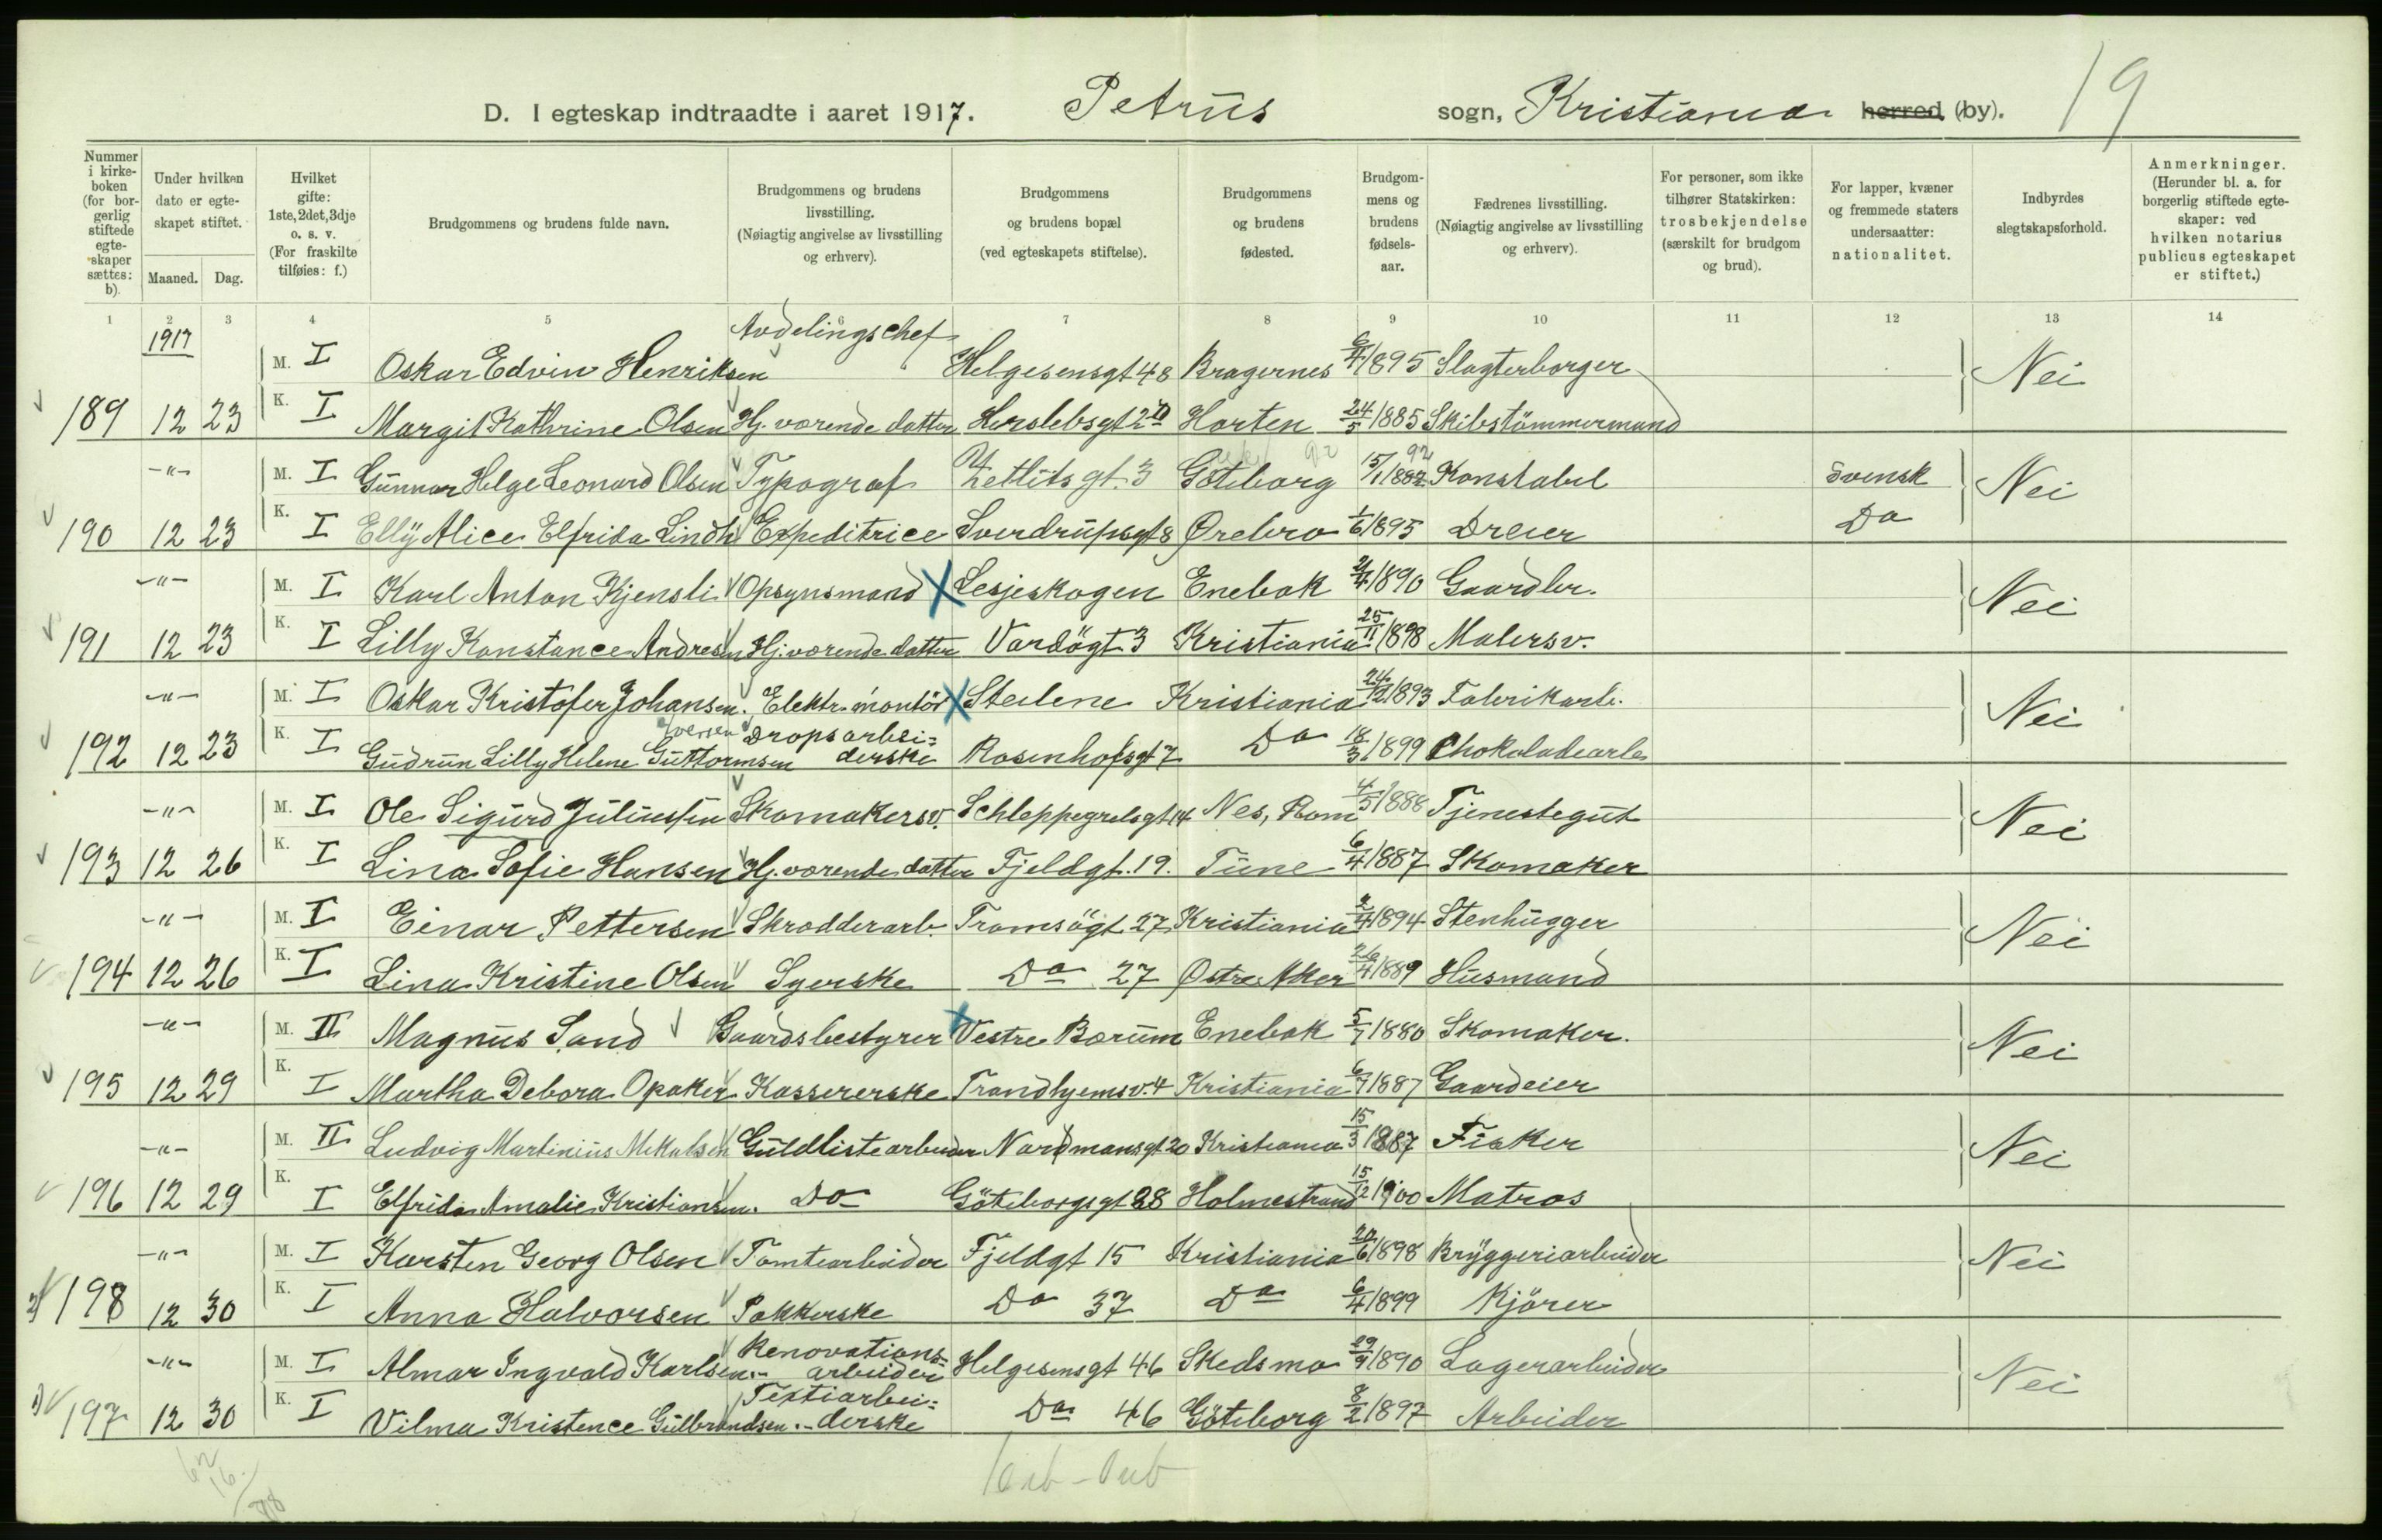 19
D. I egteskap indtraadte i aaret 1917. Petrus sogn, Kristiania herred (by).
Nummer i kirkeboken (for borgerlig stiftede egteskaper sættes: b).
Under hvilken dato er egteskapet stiftet.
Maaned. Dag.
Hvilket gifte: 1ste, 2det, 3dje o. s. v. (For fraskilte tilføies: f.)
Brudgommens og brudens fulde navn.
Brudgommens og brudens livsstilling. (Nøiagtig angivelse av livsstilling og erhverv).
Brudgommens og brudens bopæl (ved egteskapets stiftelse).
Brudgommens og brudens fødested.
Brudgommens og brudens fødselsaar.
Fædrenes livsstilling. (Nøiagtig angivelse av livsstilling og erhverv).
For personer, som ikke tilhører Statskirken: trosbekjendelse (særskilt for brudgom og brud).
For lapper, kvæner og fremmede staters undersaatter: nationalitet.
Indbyrdes slegtskapsforhold.
Anmerkninger. (Herunder bl. a. for borgerlig stiftede egteskaper: ved hvilken notarius publicus egteskapet er stiftet.)
1 2 3 4 5 6 7 8 9 10 11 12 13 14
1917 M. I Oskar Edvin Henriksen Avdelingschef Helgesensgt 48 Bragernes 6/4 1895 Slagterborger Nei
189 12 23 K. I Margit Kathrine Olsen Hj. værende datter Herslebsgt 2 II Horten 24/5 1885 Skibstömmermand
-"- M. I Gunnar Helge Leonard Olsen Typograf Zetlitsgt. 3 Göteborg 15/1 1892 Konstabel Svensk Nei
190 12 23 K. I Elly Alice Elfrida Lindh Expeditrice Sverdrupsgt 8 Ørebro 1/6 1895 Dreier Do
-"- M. I Karl Anton Kjensli Opsynsmand Lesjeskogen Enebak 21/4 1890 Gaardbr. Nei
191 12 23 K. I Lilly Konstance Andresen Hj. værende datter Vardögt 3 Kristiania 25/11 1898 Malersv.
-"- M. I Oskar Kristofer Johansen. Elektr. montör Steilene Kristiania 24/12 1893 Fabrikarb. Nei
192 12 23 K. I Gudrun Lilly Helene Guttormsen Iversen Dropsarbeiderske Rosenhofsgt 7 Do 18/3 1899 Chokoladearb
-"- M. I Ole Sigurd Juliussen Skomakersv. Schleppegrelsgt 14 Nes, Rom 4/5 1888 Tjenestegut Nei
193 12 26 K. I Lina Sofie Hansen Hj. værende datter Fjeldgt. 19. Tune 6/4 1887 Skomaker
-"- M. I Einar Pettersen Skrædderarb. Tromsögt 27 Kristiania 2/4 1894 Stenhugger Nei
194 12 26 K. I Lina Kristine Olsen Syerske Do 27 Østre Aker 26/4 1889 Husmand
-"- M. II Magnus Sand Gaardsbestyrer Vestre Bærum Enebak 5/7 1880 Skomaker. Nei
195 12 29 K. I Martha Debora Opaker Kassererske Trondhjemsv. 4 Kristiania 6/7 1887 Gaardeier
-"- M. II Ludvig Martinius Mikalsen Guldlistearbeider Nordmansgt 20 Kristiania 15/3 1887 Fisker Nei
196 12 29 K. I Elfrida Amalie Kristiansen. Do Göteborgsgt 28 Holmestrand 15/12 1900 Matros
-"- M. I Karsten Georg Olsen Tomtearbeider Fjeldgt 15 Kristiania 20/6 1898 Bryggeriarbeider Nei
2) 198 12 30 K. I Anna Halvorsen Pakkerske Do 37 Do 6/4 1899 Kjörer
-"- M. I Almar Ingvald Karlsen Renovationsarbeider Helgesensgt 46 Skedsmo 29/9 1890 Lagerarbeider Nei
1) 197 12 30 K. I Vilma Kristence Gulbrandsen Textiarbeiderske Do 46 Göteborg 8/2 1897 Arbeider